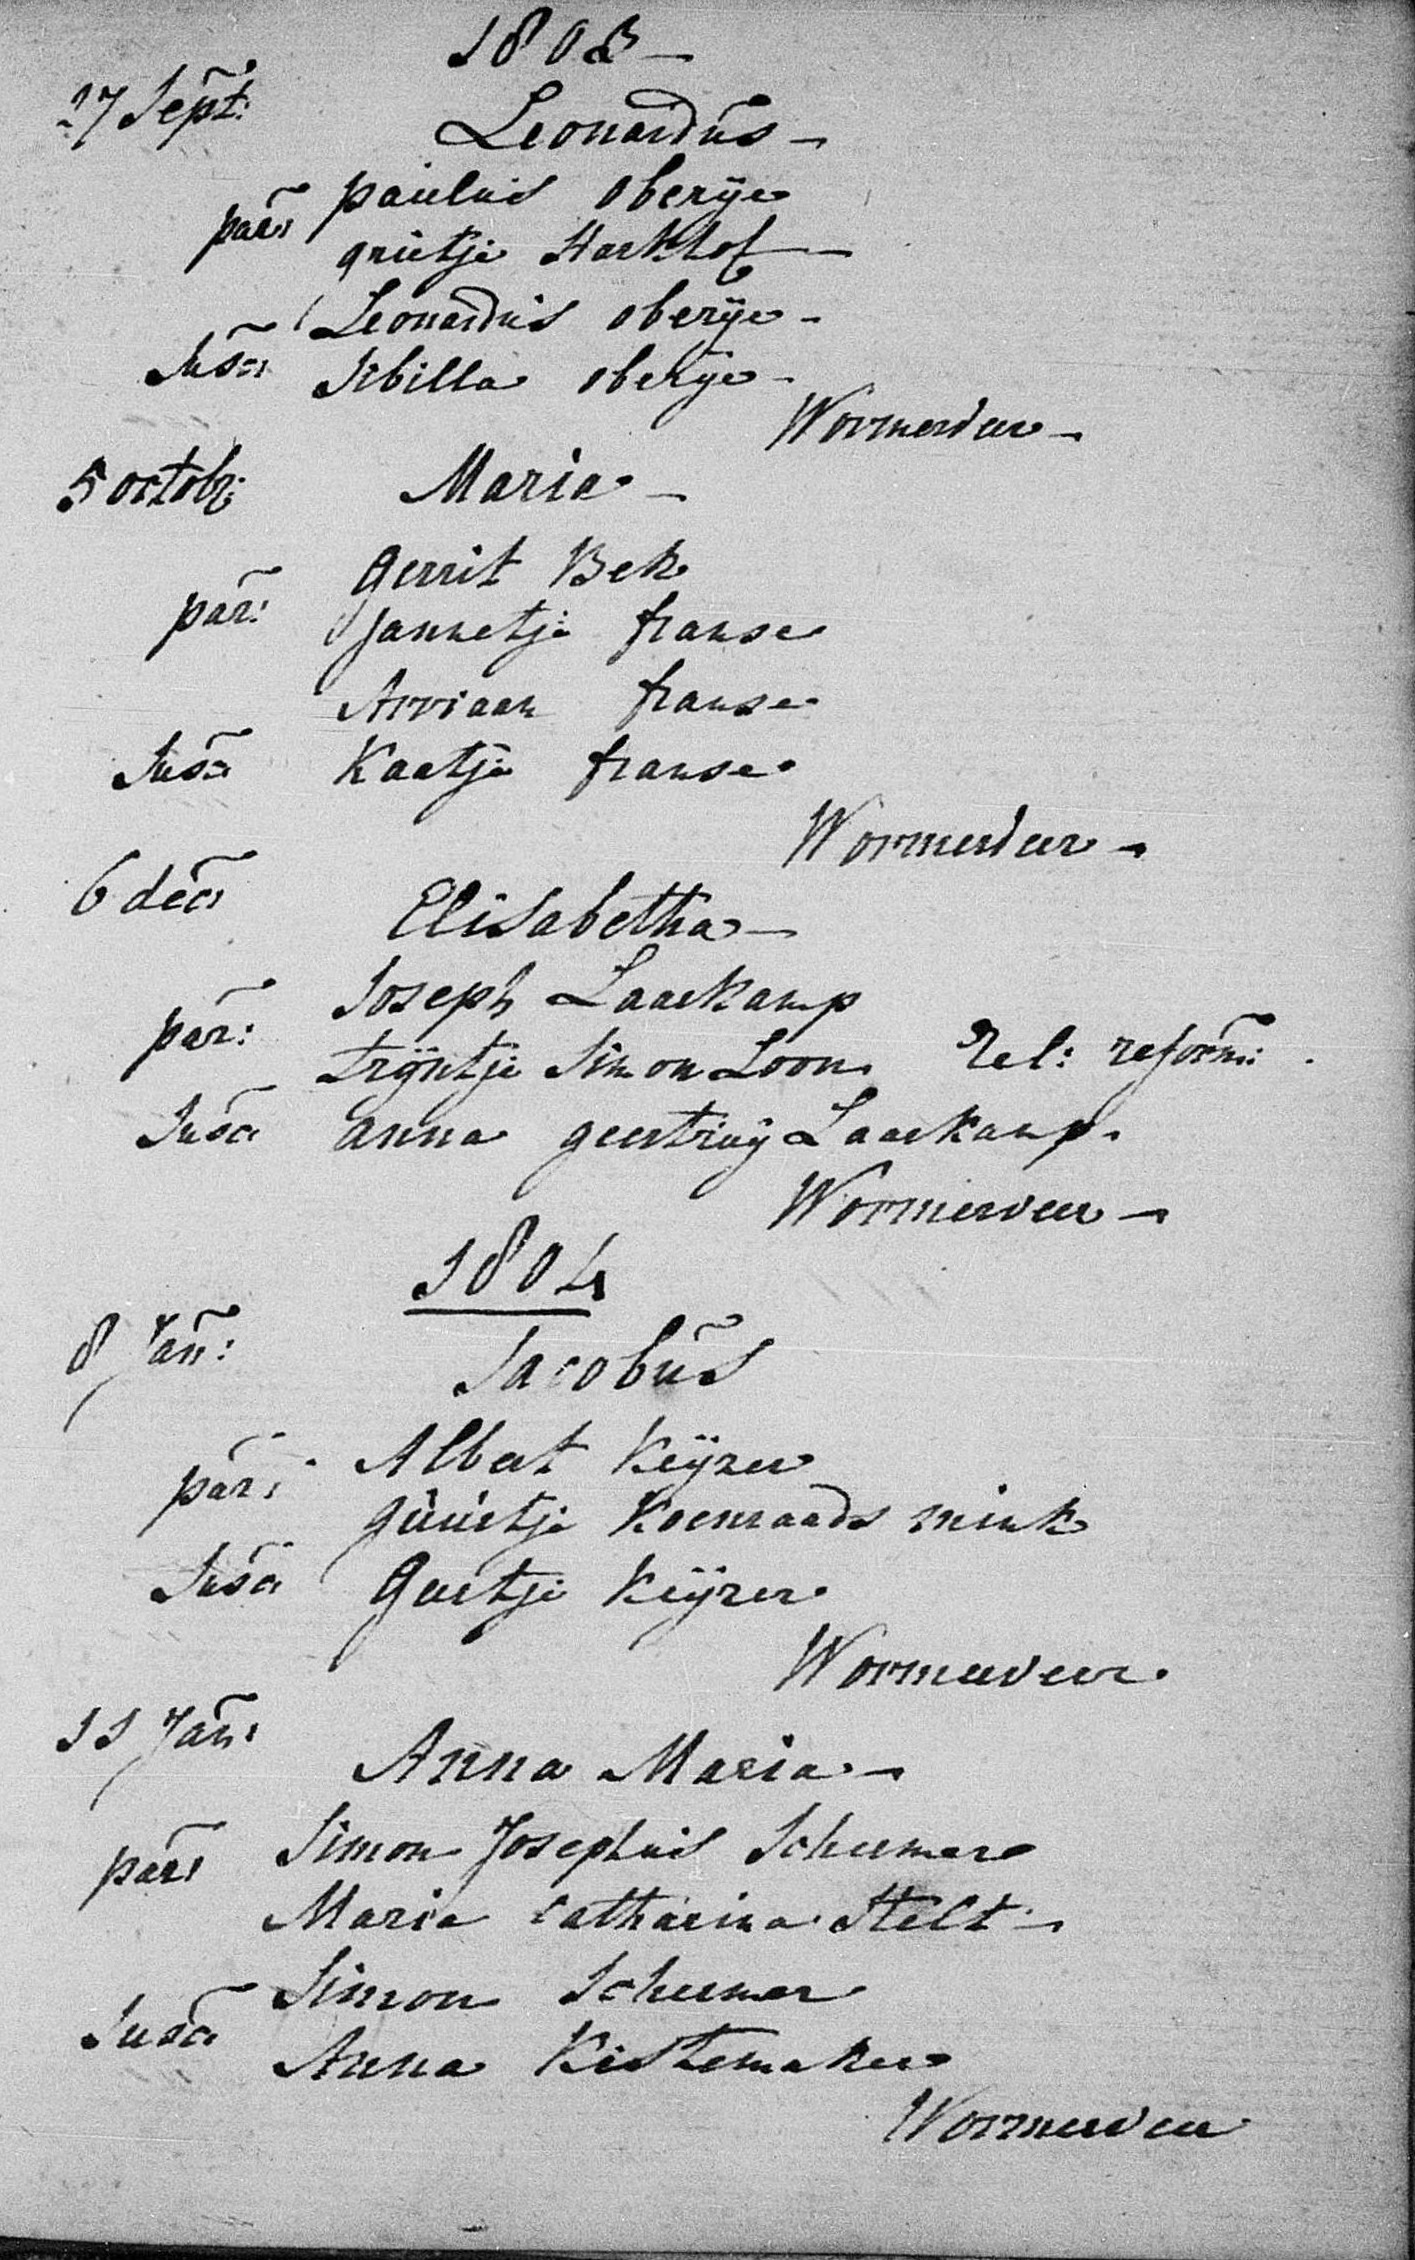 1803 -
27 Sept:
Leonardus -
paulus oberÿe
par:
grietje Harkhof -
Leonardus oberÿe -
Susc:
Sibilla oberÿe -
Wormerveer -
5 octob:
Maria -
gerrit Bek
par:
Jannetje franse
Arriaan franse
Susc:
Kaatje franse
Wormerveer -
6 dec:
Elisabetha -
Joseph Laarkamp
par:
trÿntje Simon Loon Rel: reform:
Susc: anna geertruÿ Laarkamp
Wormerveer -
1804
8 Jan:
Jacobus
Albert Keÿzer
par:
guurtje Koenraads mink
Susc: Geertje Keÿzer
Wormerveer
11 Jan:
Anna Maria -
Simon Josephus Scheemer
par:
Maria Catharina Stelt -
Simon Scheemer
Susc:
Anna Kistemaker
Wormerveer